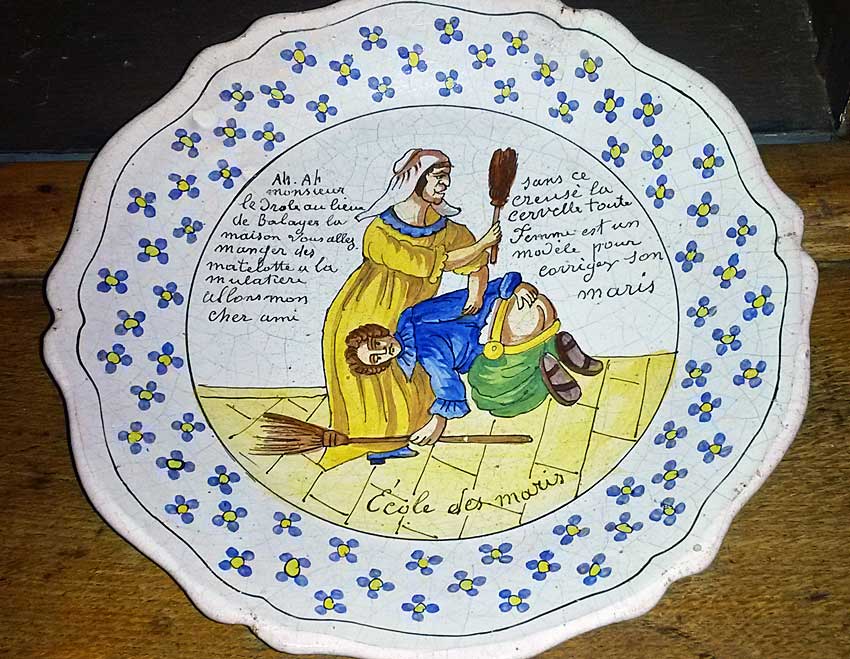 Ah. Ah
monsieur
le Drole au lieu
de Balayer la
maison vous allez
manger des
matelotte a la
mulatiere
allons mon
cher ami
sans ce
creusé la
cervelle toute
Femme est un
modele pour
corriger son
maris
École des maris